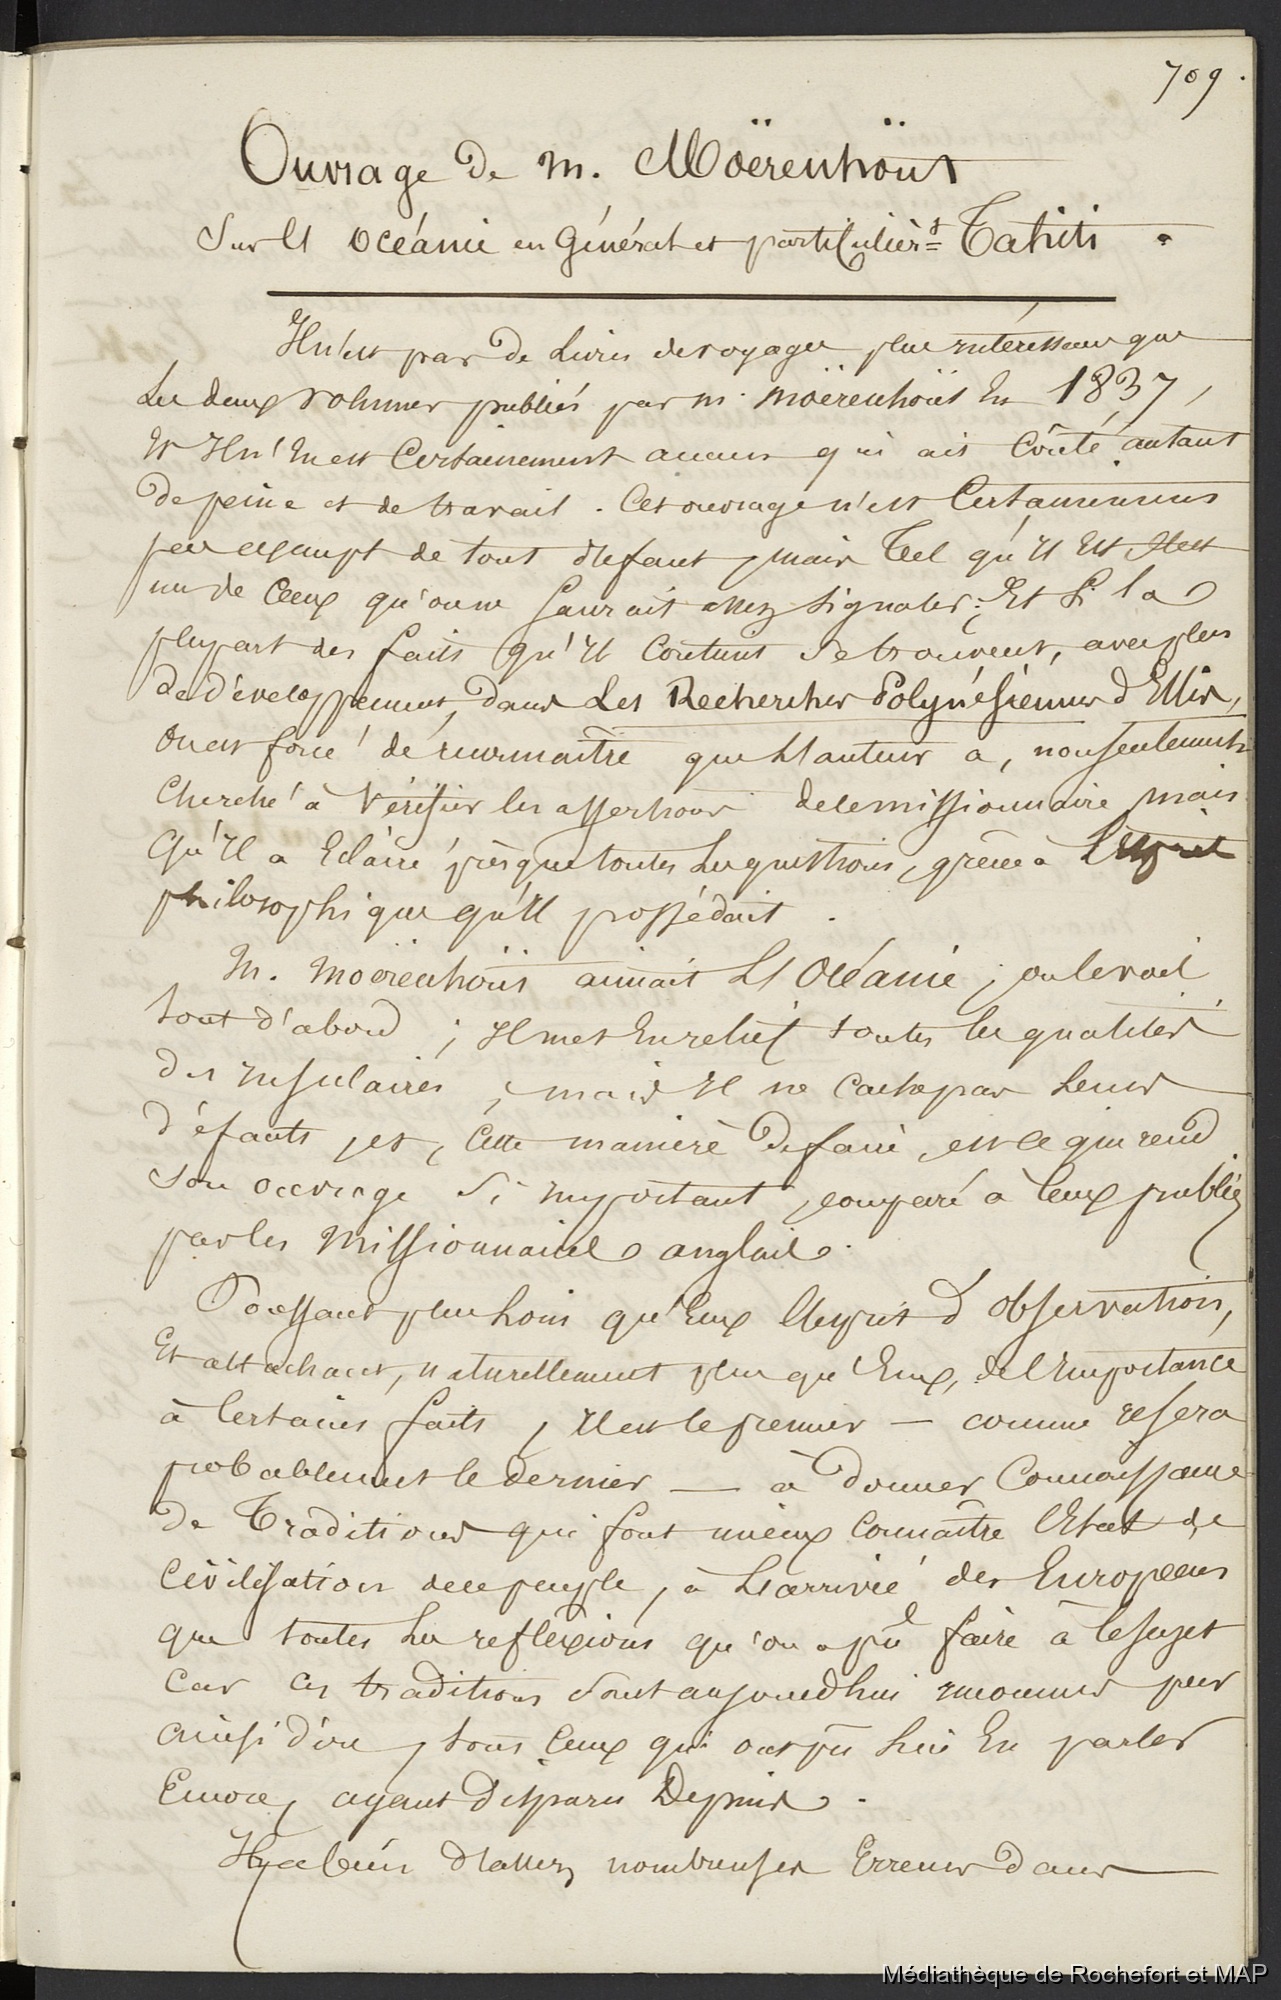 709.
Ouvrage de M. Moërenhoüt
Sur l'Océanie en Général et particulièrt Tahiti.
Il n'est pas de Livres de voyages plus intéressans que
Les deux volumes publiés par M. Moërenhoüt En 1837,
Et Il n'en est Certainement aucun qui ait Coûté autant
de peine et de travail. Cet ouvrage n'est Certainement
pas exempt de tout défaut, mais Tel qu'Il Est Il est
un de Ceux qu'on ne Saurait assez signaler; Et Si la
plupart des faits qu'Il Contient se trouvent, avec plus
de développement, dans Les Recherches Polynésiennes d'Ellis,
On est forcé de reconnaître que l'auteur a, non seulement
Cherché à Vérifier les assertions de ce missionnaire, mais
Qu'Il a Eclairé presque toutes Les questions, grâce à L'Esprit
philosophique qu'Il possédait.
M. Moërenhoüt aimait L'Océanie; on le voit
tout d'abord; Il met En relief toutes les qualités
des insulaires, mais Il ne Cache pas Leurs
défauts, et, Cette manière De faire, est ce qui rend
Son ouvrage Si important, comparé à Ceux publiés
par les Missionnaires anglais.
Possédant plus loin qu'Eux l'Esprit d'observation,
Et attachant, naturellement plus qu'Eux, de l'Importance
à Certains faits, Il est le premier — comme Il sera
probablement le dernier — à donner Connaissance
de Traditions qui font mieux Connaître l'Etat de
Civilisation de ce peuple, à L'arrivée des Européens
que toutes Les réflexions qu'on a pu faire à ce Sujet
Car Ces traditions Sont aujourd'hui inconnues pour
ainsi dire, tous Ceux qui ont pu Lui En parler
Encore, ayant disparu Depuis.
Il y a bien d'assez nombreuses Erreurs dans
Médiathèque de Rochefort et MAP